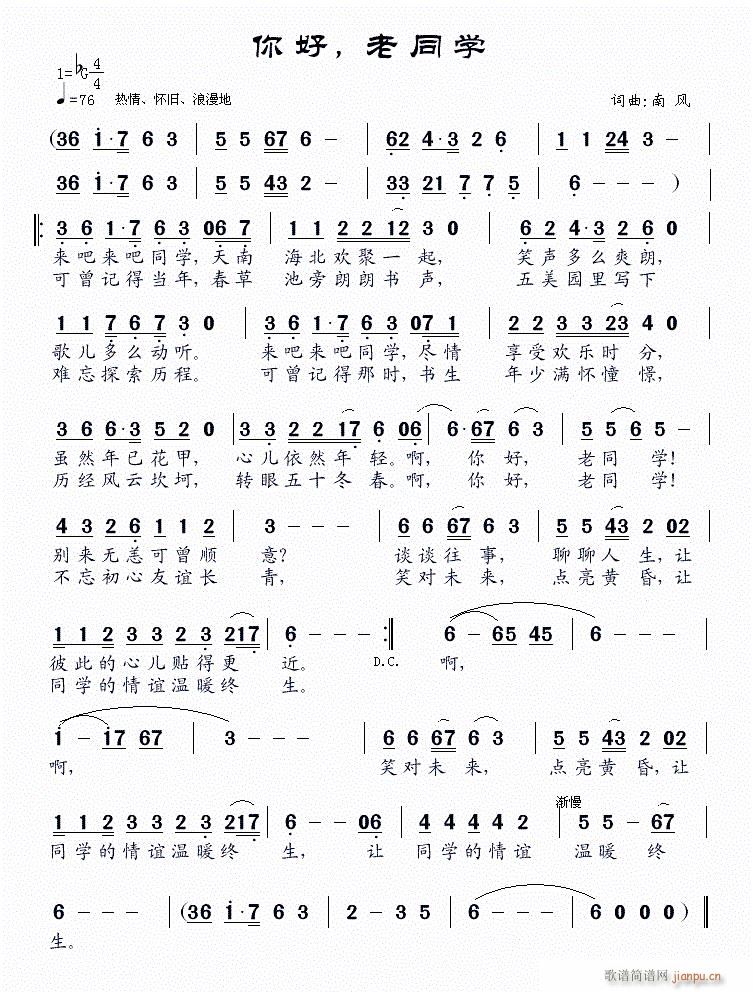 你好，老同学
1=♭G 4/4
♩=76 热情、怀旧、浪漫地 词曲:南 风
(36 i·7 6 3 | 5 5 67 6 - | 62 4·3 2 6 | 1 1 24 3 - |
36 i·7 6 3 | 5 5 43 2 - | 33 21 7 7 5 | 6 - - )
‖: 3 6 1·7 6 3 06 7 | 1 1 2 2 12 3 0 | 6 2 4·3 2 6 0 |
来吧来吧同学,天南 海北欢聚一起, 笑声多么爽朗,
可曾记得当年,春草 池旁朗朗书声, 五美园里写下
1 1 7 6 7 3 0 | 3 6 1·7 6 3 07 1 | 2 2 3 3 23 4 0 |
歌儿多么动听。 来吧来吧同学,尽情 享受欢乐时分,
难忘探索历程。 可曾记得那时,书生 年少满怀憧憬,
3 6 6·3 5 2 0 | 3 3 2 2 17 6 06 | 6·67 6 3 | 5 5 6 5 - |
虽然年已花甲, 心儿依然年轻。啊, 你好, 老同学!
历经风云坎坷, 转眼五十冬春。啊, 你好, 老同学!
4 3 2 6 1 1 2 | 3 - - | 6 6 67 6 3 | 5 5 43 2 02 |
别来无恙可曾顺 意? 谈谈往事, 聊聊人生,让
不忘初心友谊长 青, 笑对未来, 点亮黄昏,让
1 1 2 3 2 3 217 | 6 - - - :‖ 6 - 65 45 | 6 - - - |
彼此的心儿贴得更 近。 D.C. 啊,
同学的情谊温暖终 生。
i - i7 67 | 3 - - - | 6 6 67 6 3 | 5 5 43 2 02 |
啊, 笑对未来, 点亮黄昏,让
渐慢
1 1 2 3 3 2 3 217 | 6 - - 06 | 4 4 4 4 4 2 | 5 5 - 67 |
同学的情谊温暖终 生, 让 同学的情谊 温暖终
6 - - - | (36 i·7 6 3 | 2 - 3 5 | 6 - - - | 6 0 0 0 ) ‖
生。
歌谱简谱网
jianpu.cn